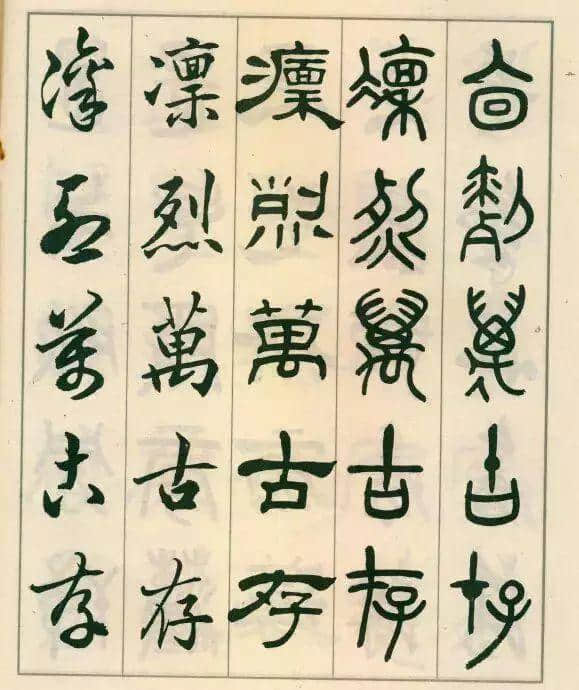 㐭烈萬古存
凜烈萬古存
凜烈萬古存
凜烈萬古存
凜烈萬古存